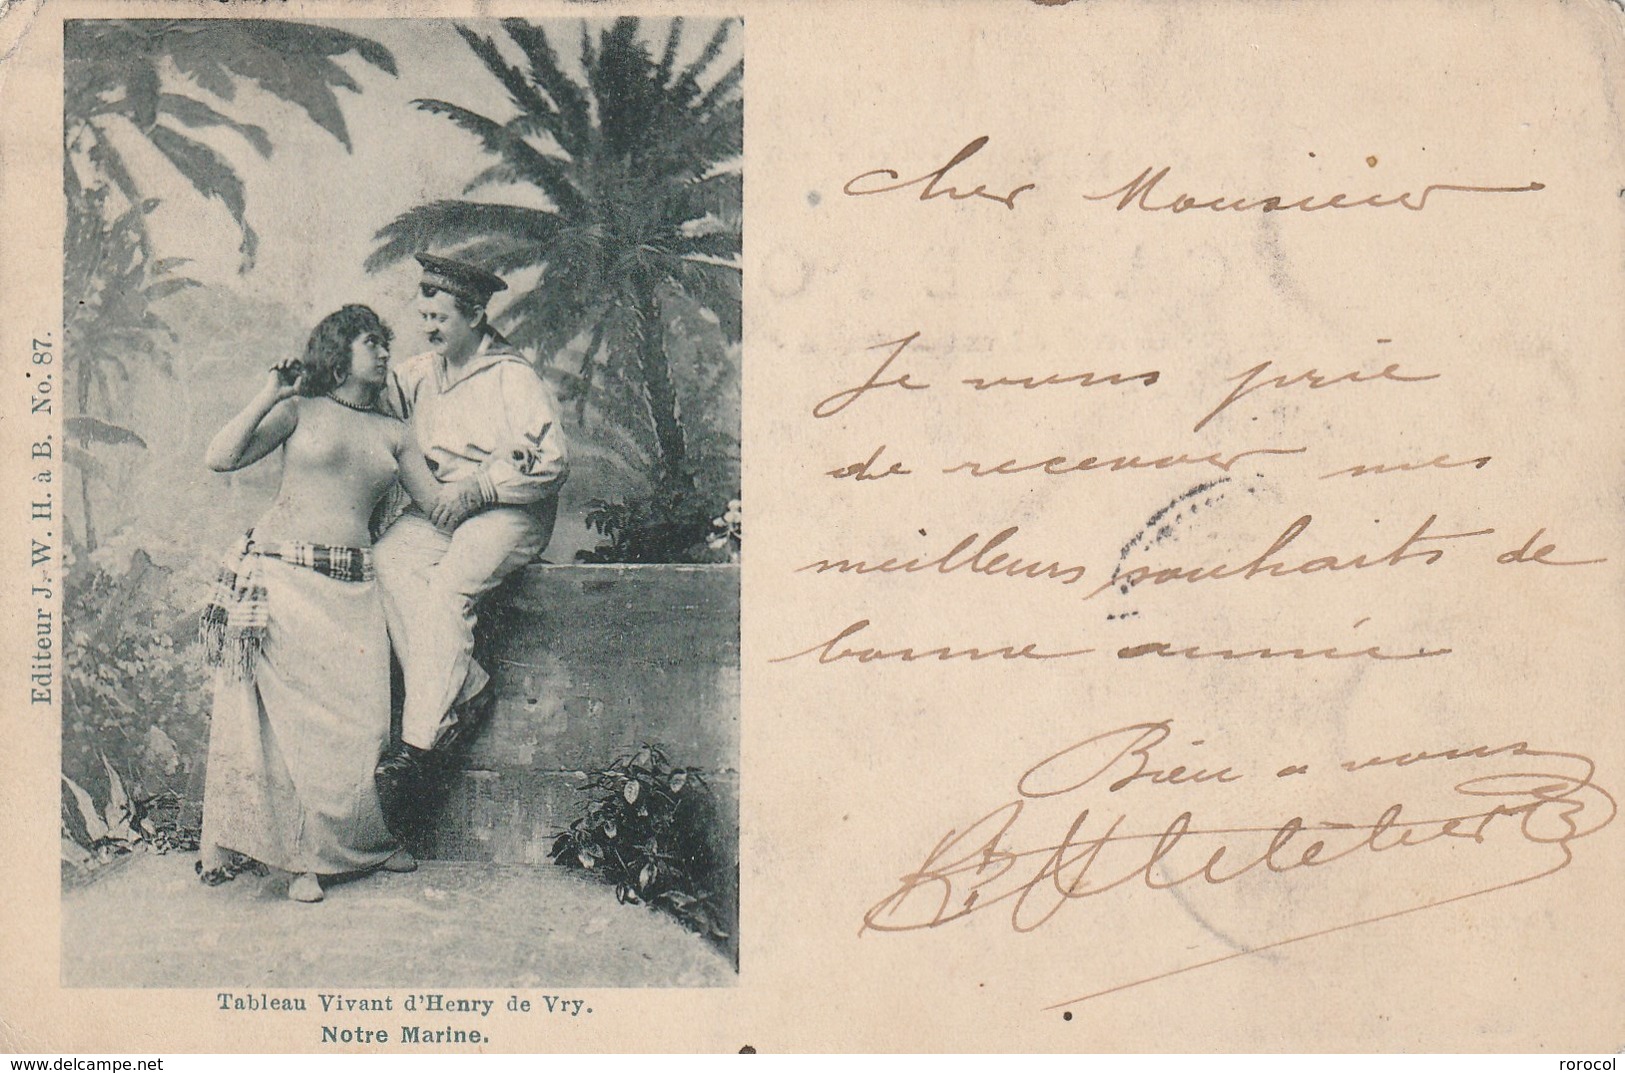 Editeur J. W. H. à B. No. 87.
Tableau Vivant d'Henry de Vry.
Notre Marine.
Cher Monsieur
Je vous prie
de recevoir mes
meilleurs souhaits de
bonne année
Bien a vous
www.delcampe.net
rorocol